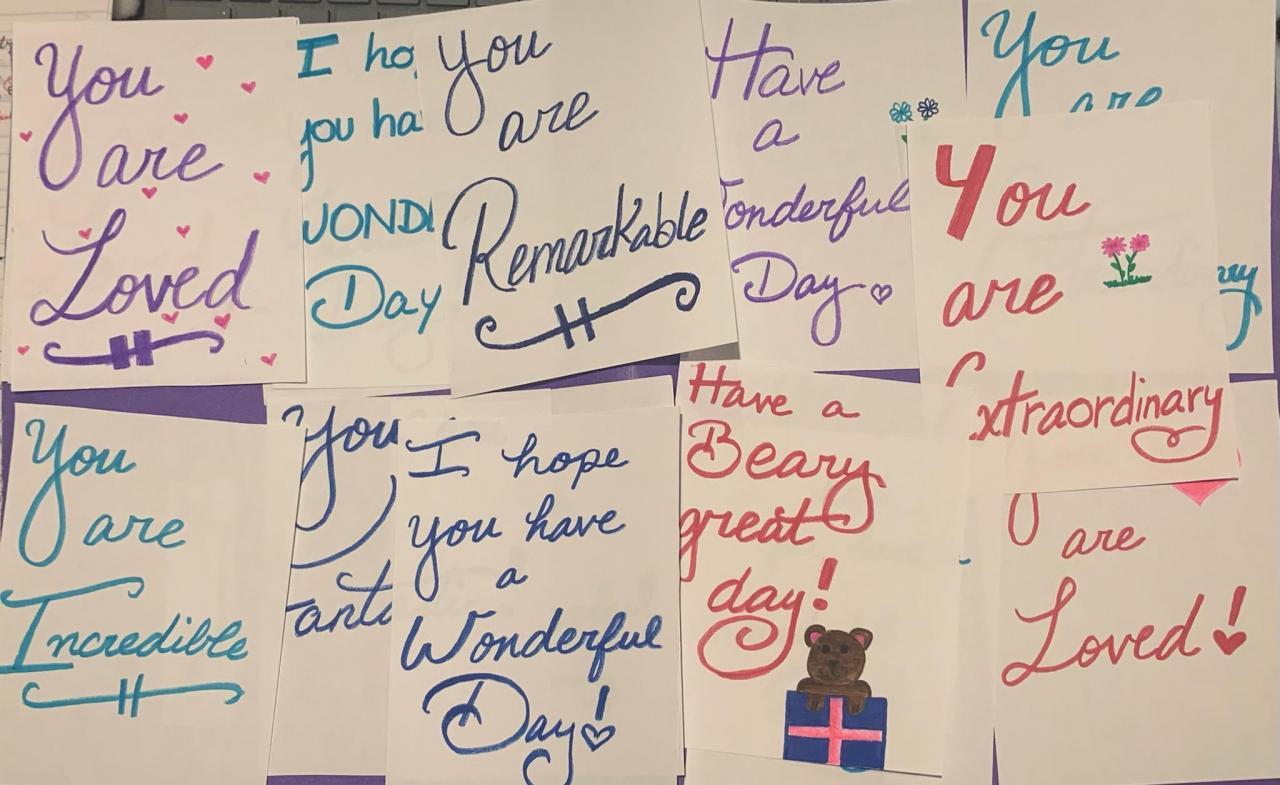 You
are
Loved
I ho
you ha
WOND
Day
You
are
Remarkable
Have
a
Wonderful
Day
You
are
ry
You
are
Extraordinary
You
are
Incredible
You
anta
I hope
you have
a
Wonderful
Day!
Have a
Beary
great
day!
are
Loved!